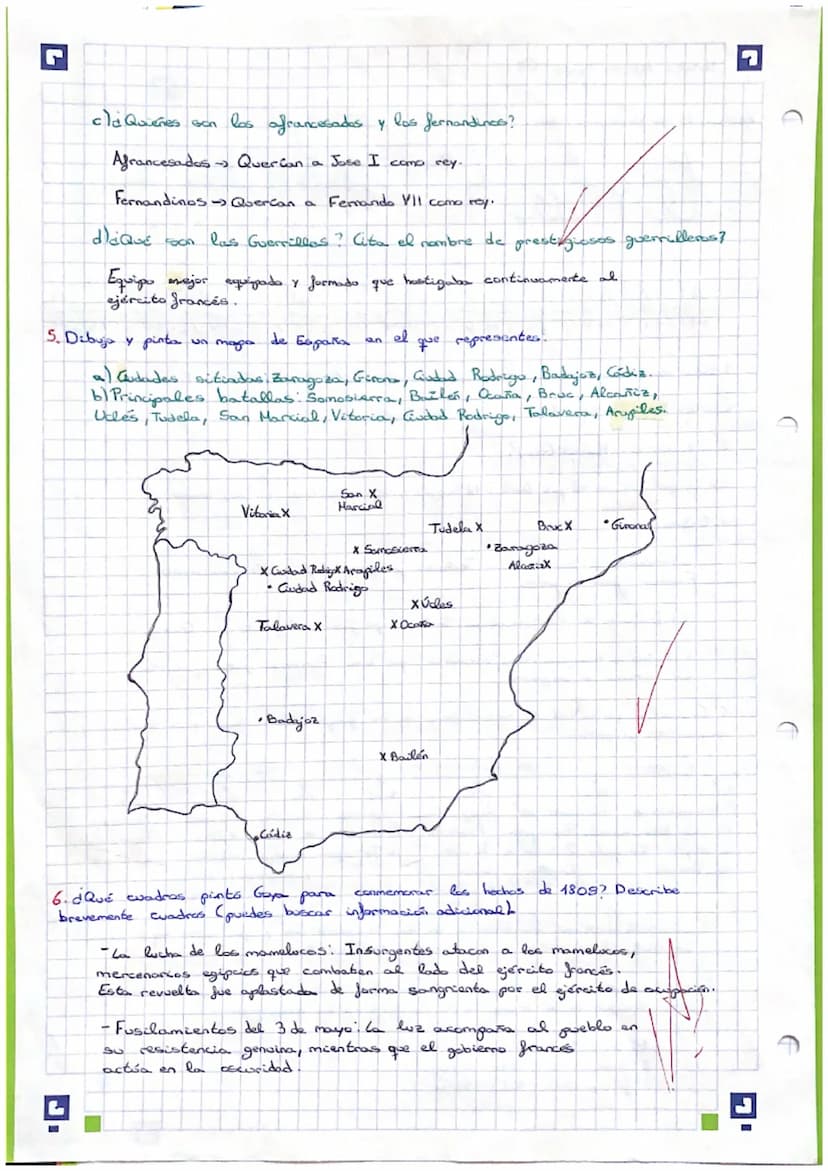 c)¿Quiénes son los afrancesados y los fernandinos?
Afrancesados → Querían a Jose I como rey.
Fernandinos → Querían a Fernando VII como rey.
d)¿Qué son las Guerrillas? Cita el nombre de prestigiosos guerrilleros?
Equipo mejor equipado y formado que hostigaba continuamente al
ejército francés.
5. Dibuja y pinta un mapa de España en el que representes:
a) Ciudades sitiadas: Zaragoza, Girona, Ciudad Rodrigo, Badajoz, Cádiz.
b) Principales batallas: Somosierra, Bailén, Ocaña, Bruc, Alcañiz,
Uclés, Tudela, San Marcial, Vitoria, Ciudad Rodrigo, Talavera, Arapiles.
San X
Marcial
Vitoria X
Tudela X
Bruc X
• Girona
X Somosierra
• Zaragoza
X Ciudad Rodrigo X Arapiles
Alcañiz X
• Ciudad Rodrigo
X Úcles
Talavera X
X Ocaña
• Badajoz
X Bailén
• Cádiz
6. ¿Qué cuadros pintó Goya para conmemorar los hechos de 1808? Describe
brevemente cuadros (puedes buscar información adicional).
- La lucha de los mamelucos: Insurgentes atacan a los mamelucos,
mercenarios egipcios que combaten al lado del ejército francés.
Esta revuelta fue aplastada de forma sangrienta por el ejército de ocupación.
- Fusilamientos del 3 de mayo: La luz acompaña al pueblo en
su resistencia genuina, mientras que el gobierno francés
actúa en la oscuridad.